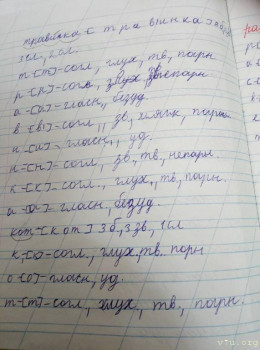 травинка [т р а в' и н к а] 8 б,
3 сл.
т-[т]-согл., глух., тв., парн
р-[р]-согл., непарн
а-[а]-гласн, безуд.
в-[в']-согл., зв., мягк, парн
и-[и]-гласн., уд.
н-[н]-согл., зв., тв, непарн.
к-[к]-согл., глух., тв, парн.
а-[а]-гласн, безуд.
кот-[кот] 3 б, 3 зв, 1 сл
к-[к]-согл., глух. тв. парн
о-[о]-гласн, уд.
т-[т]-согл, глух., тв., парн.
v7u.org